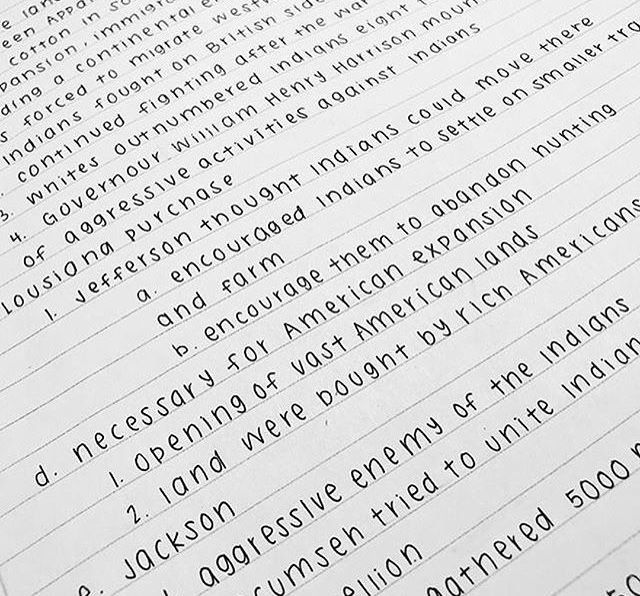 e lan
een Appa
cotton in so
pansion, immigr
ding a continental e
s forced to migrate west
Indians fought on British side
continued fighting after the war
3. whites outnumbered Indians eight t
4. Governour William Henry Harrison moun
of aggressive activities against Indians
Lousiana purchase
1. Jefferson thought Indians could move there
a. encouraged Indians to settle on smaller tra
and farm
b. encourage them to abandon hunting
d. necessary for American expansion
1. opening of vast American lands
2. land were bought by rich Americans
e. Jackson
aggressive enemy of the Indians
cumseh tried to unite Indian
ellion
gathered 5000